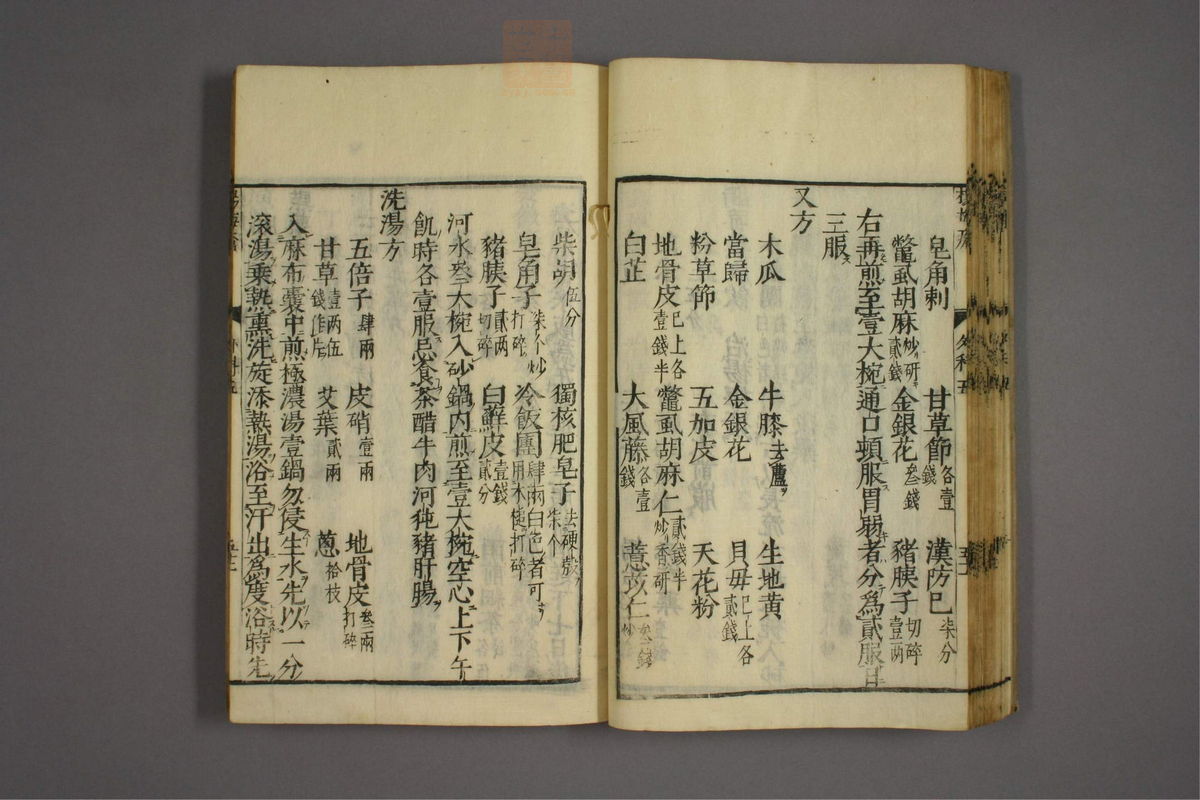 皂角刺 甘草節各壹錢 漢防巳柒分
鼈虱胡麻炒研貳錢 金銀花叁錢 豬胰子切碎壹兩
右再煎至壹大椀通口頓服胃弱者分爲貳服
三服
又方
木瓜 牛膝去蘆 生地黃
當歸 金銀花 貝母巳上各貳錢
粉草節 五加皮 天花粉
地骨皮巳上各壹錢半 鼈虱胡麻仁貳錢半炒香研
白芷 大風藤各壹錢 薏苡仁叁錢炒
柴胡伍分 獨核肥皂子去硬殼柒个
皂角子柒个炒打碎 冷飯團肆兩白色者可用木槌打碎
豬胰子貳兩切碎 白鮮皮壹錢貳分
河水叁大椀入砂鍋内煎至壹大椀空心上下午
飢時各壹服忌食茶醋牛肉河㹠豬肝腸
洗湯方
五倍子肆兩 皮硝壹兩 地骨皮叁兩打碎
甘草壹兩伍錢作片 艾葉貳兩 蔥拾枝
入麻布囊中煎極濃湯壹鍋勿侵生水先以一分
滾湯乗熱熏洗旋添熱湯浴至汗出爲度浴時先